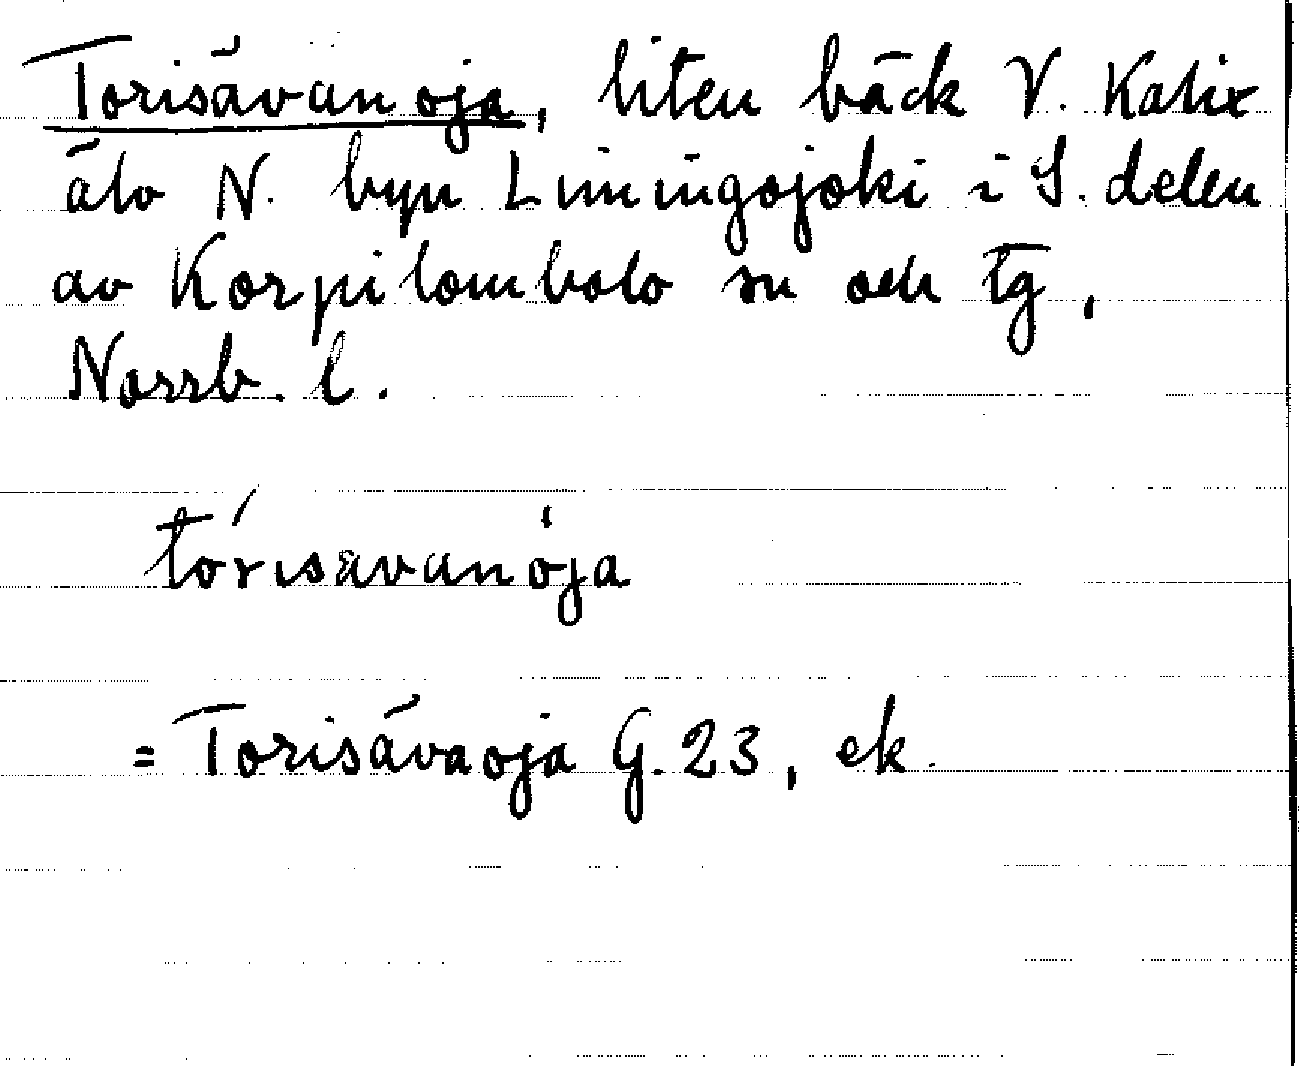 Torisävanoja, liten bäck V. Kalix
älv N. byn Limingojoki i S. delen
av Korpilombolo sn och tg,
Norrb. l.
tórisavanòja
= Torisävaoja G. 23, ek.